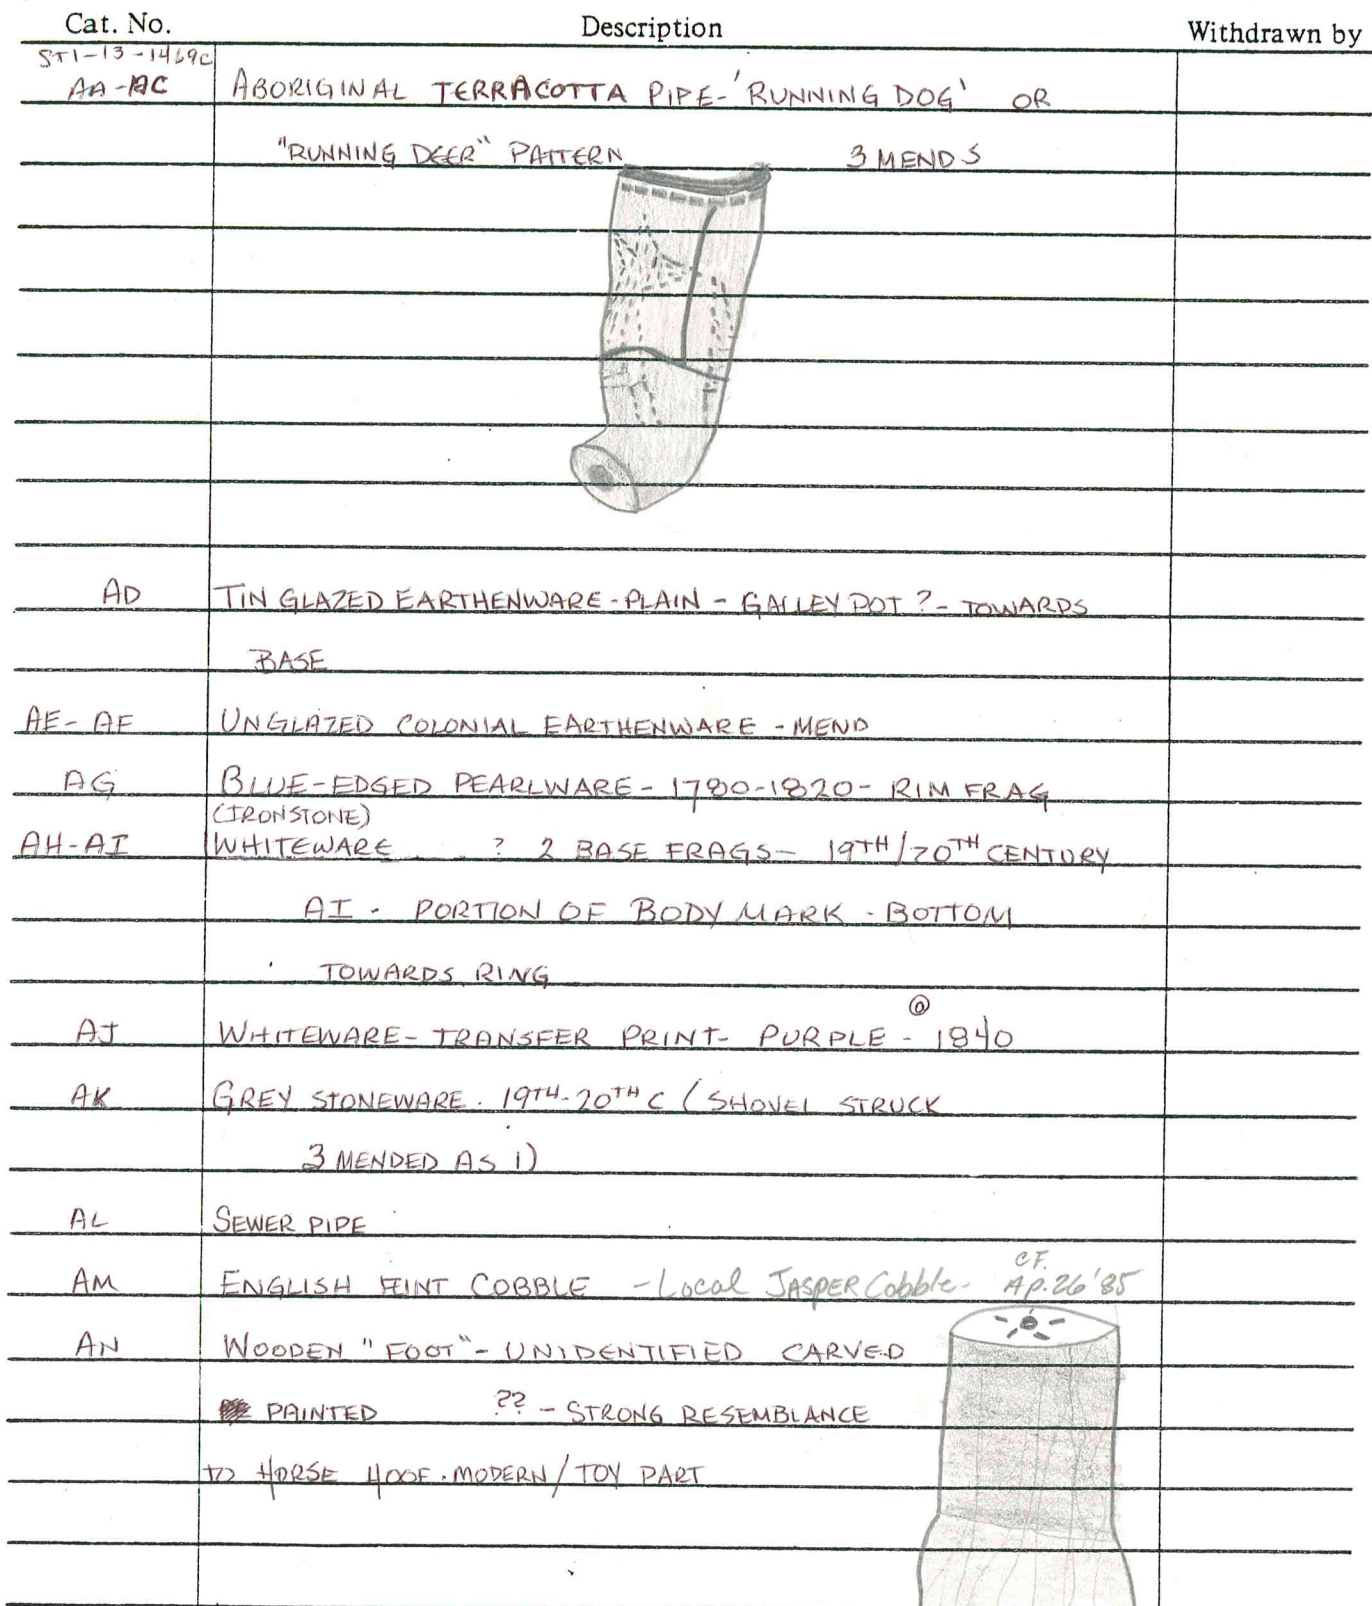 Cat. No. Description Withdrawn by
ST1-13-1469C
AA-AC ABORIGINAL TERRACOTTA PIPE-'RUNNING DOG' OR
"RUNNING DEER" PATTERN 3 MENDS
AD TIN GLAZED EARTHENWARE-PLAIN - GALLEY POT ?- TOWARDS
BASE
AE-AF UNGLAZED COLONIAL EARTHENWARE - MEND
AG BLUE-EDGED PEARLWARE - 1780-1820 - RIM FRAG
(IRONSTONE)
AH-AI WHITEWARE ? 2 BASE FRAGS- 19TH/20TH CENTURY
AI - PORTION OF BODY MARK - BOTTOM
TOWARDS RING
@
AJ WHITEWARE- TRANSFER PRINT- PURPLE - 1840
AK GREY STONEWARE. 19TH-20TH C (SHOVEL STRUCK
3 MENDED AS 1)
AL SEWER PIPE
CF.
AM ENGLISH FLINT COBBLE -Local JASPER Cobble- Ap.26'85
AN WOODEN "FOOT"- UNIDENTIFIED CARVED
PAINTED ?? - STRONG RESEMBLANCE
TO HORSE HOOF. MODERN/TOY PART